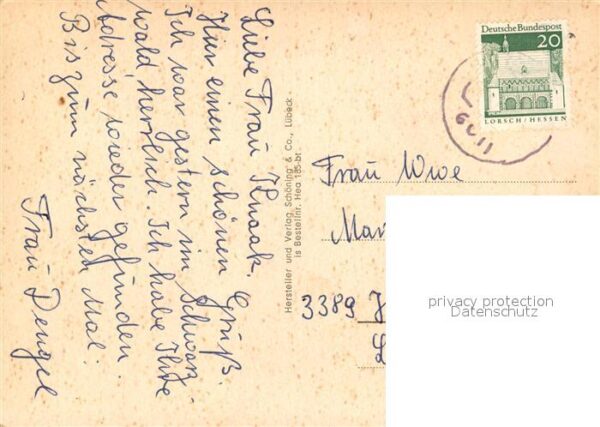 Liebe Frau Knaak.
Hier einen schönen Gruß.
Ich war gestern im Schwarz-
wald, herrlich. Ich habe Ihre
Adresse wieder gefunden.
Bis zum nächsten Mal.
Frau Dengel
Hersteller und Verlag Schöning & Co., Lübeck
Bestellnr. Hea 185-bt
Deutsche Bundespost
20
LORSCH/HESSEN
Frau Wwe
3389
privacy protection
Datenschutz